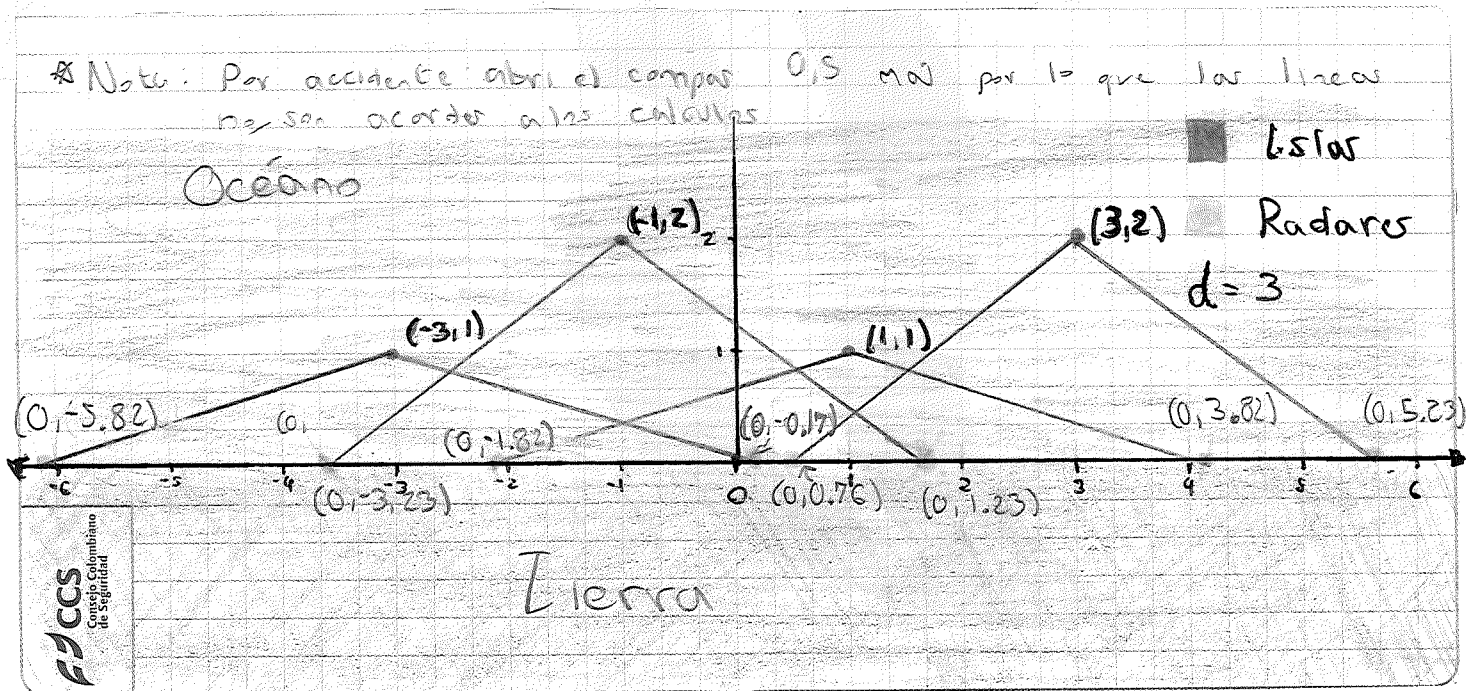 * Nota: Por accidente abri el compas 0,5 mas por lo que las lineas
no son acordes a los calculos
Océano
Islas
Radares
d = 3
(-1,2)
2
(3,2)
(-3,1)
1
(1,1)
(0,-5.82)
(0,
(0,-1.82)
(0,-0,17)
(0,3.82)
(0,5.23)
-6 -5 -4 -3 -2 -1 0 1 2 3 4 5 6
(0,-3,23)
(0,0.76)
(0,1.23)
Tierra
CCS
Consejo Colombiano
de Seguridad